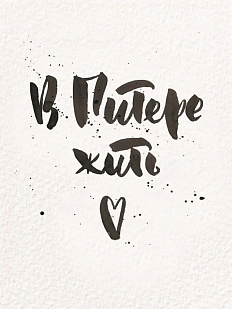 В Питере
жить